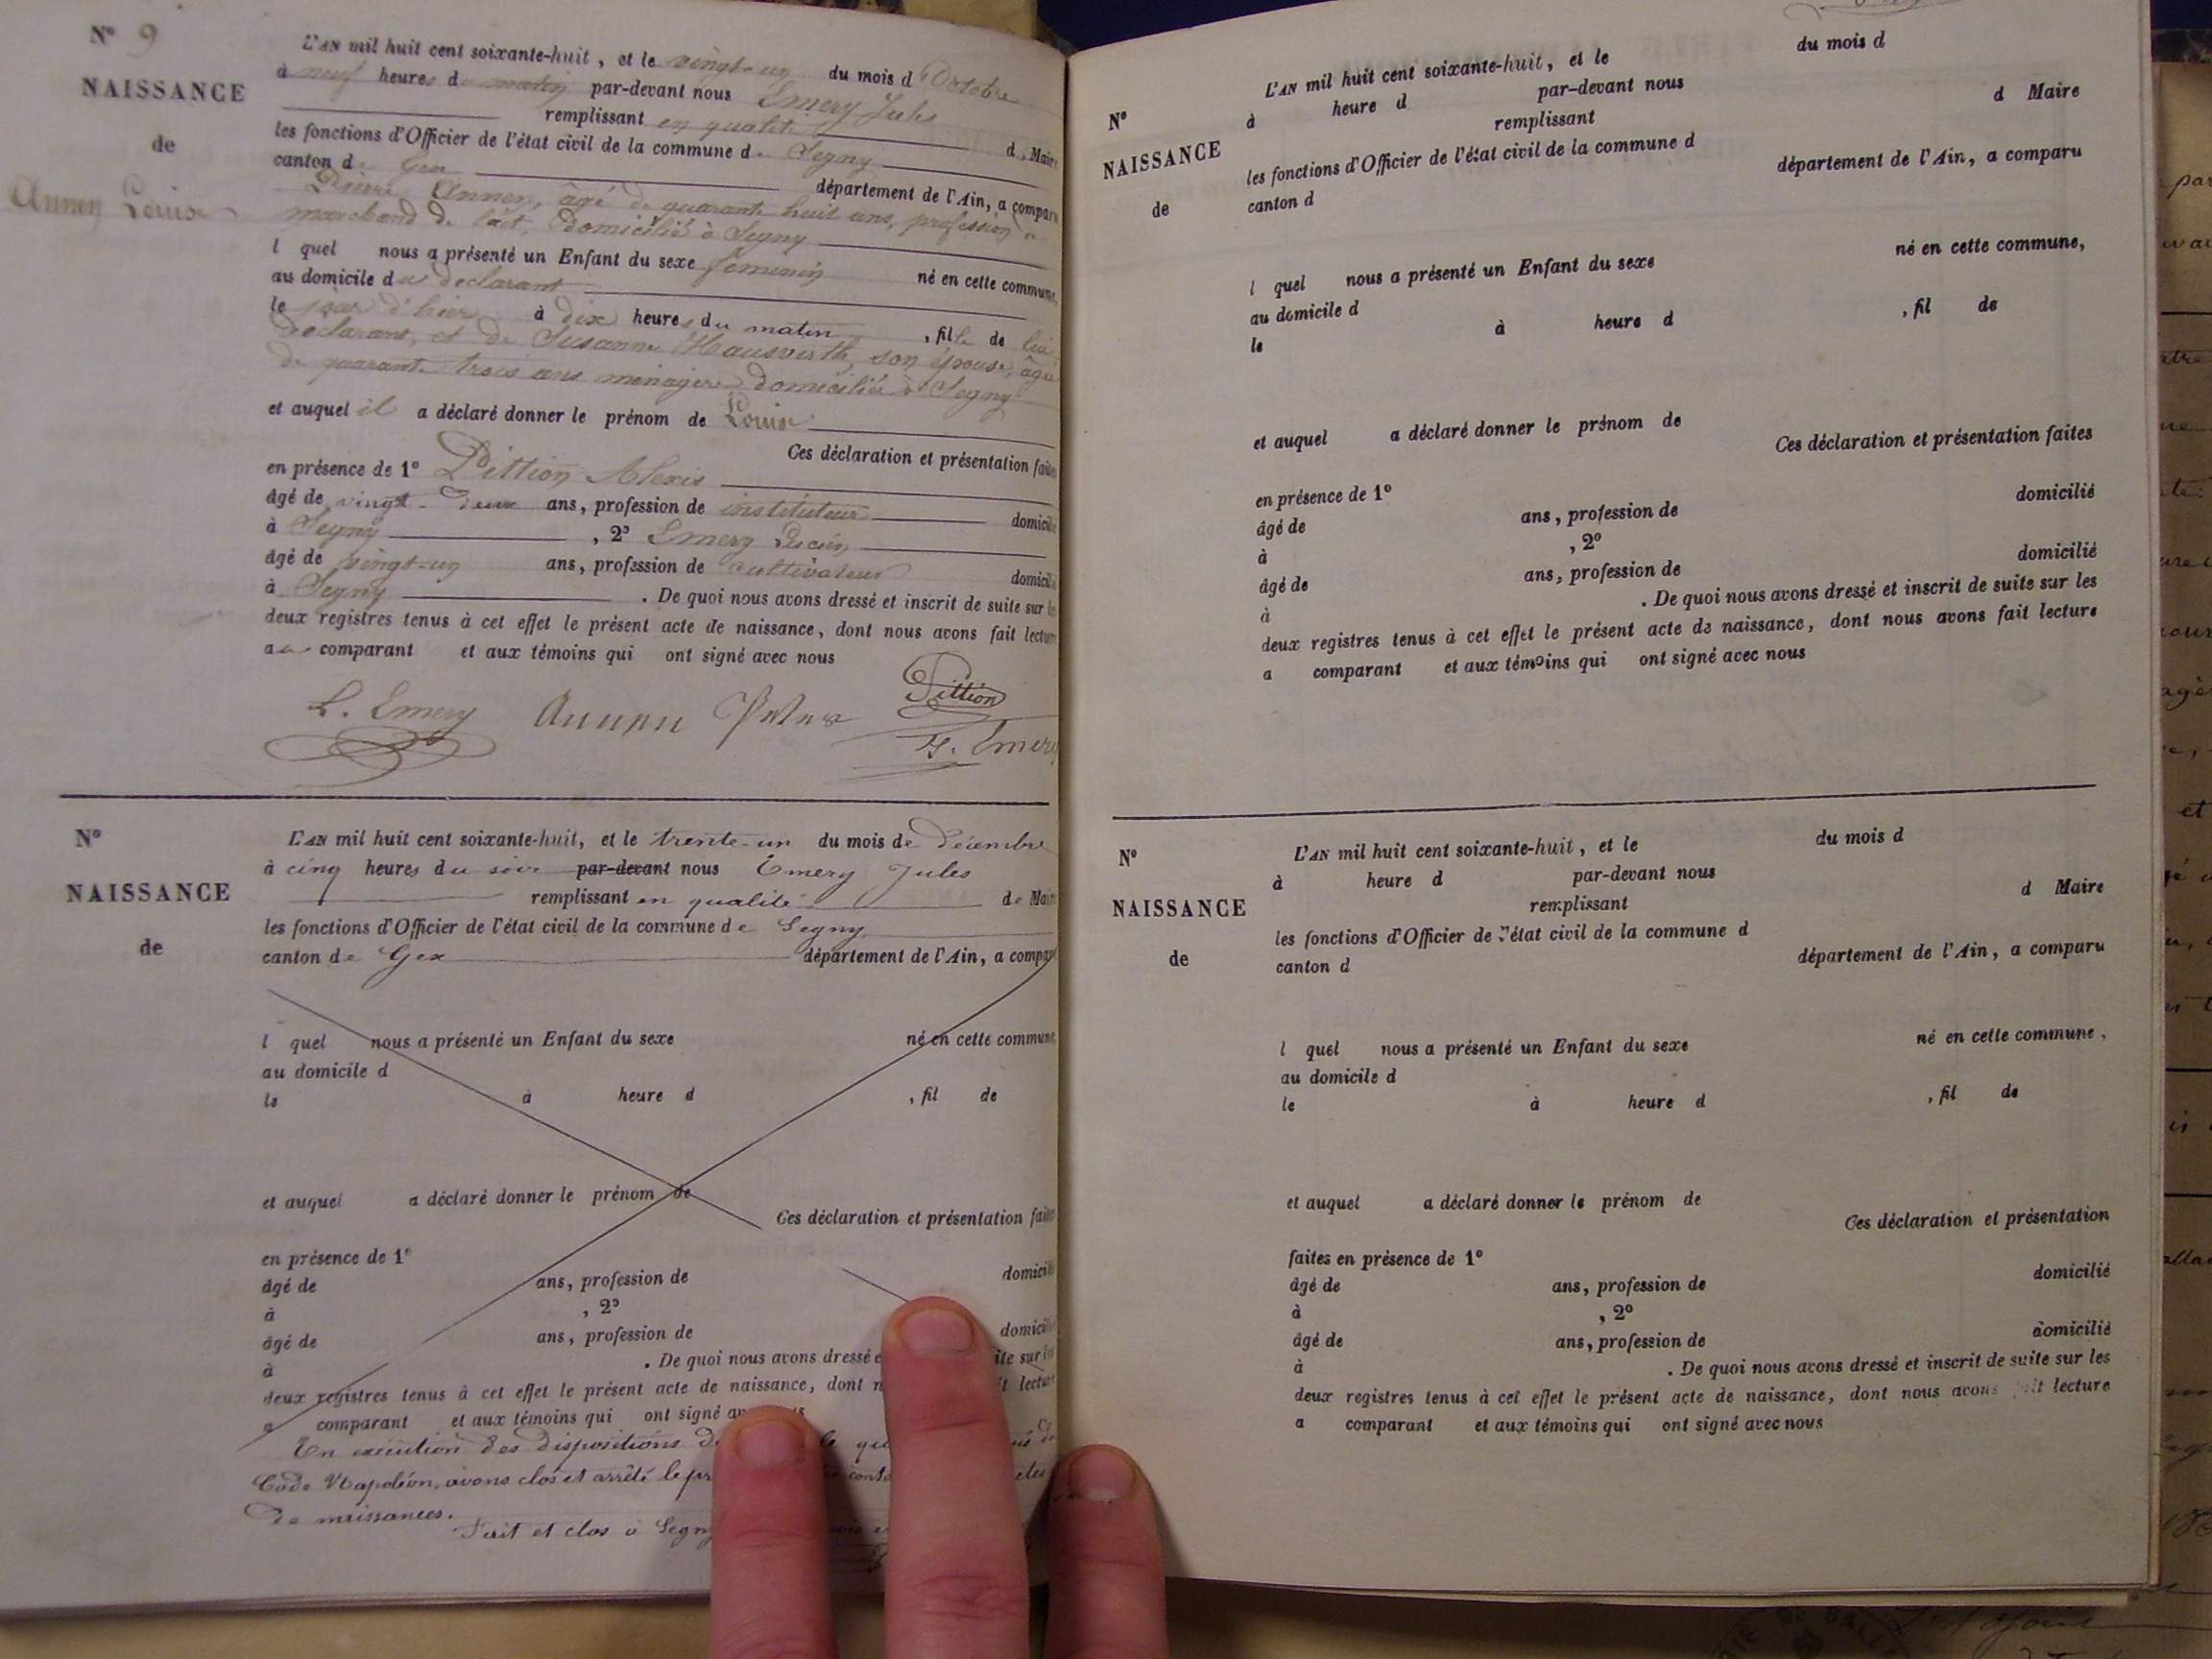 Nº 9
NAISSANCE
de
Annen Louise
L'AN mil huit cent soixante-huit, et le vingt-un du mois d'Octobre
à neuf heures du matin par-devant nous Emery Jules
remplissant en qualité de Maire
les fonctions d'Officier de l'état civil de la commune de Segny
canton de Gex département de l'Ain, a comparu
Annen, âgé de quarante huit ans, profession de
marchand de lait, domicilié à Segny
lequel nous a présenté un Enfant du sexe féminin né en cette commune,
au domicile du déclarant
le jour d'hier à dix heures du matin, fille de lui
déclarant, et de Susanne Hausvirth, son épouse, âgée
de quarante trois ans ménagère domiciliée à Segny
et auquel il a déclaré donner le prénom de Louise
Ces déclaration et présentation faites
en présence de 1º Pittion Alexis
âgé de vingt-deux ans, profession de instituteur domicilié
à Segny, 2º Emery Lucien
âgé de vingt-un ans, profession de cultivateur domicilié
à Segny. De quoi nous avons dressé et inscrit de suite sur les
deux registres tenus à cet effet le présent acte de naissance, dont nous avons fait lecture
au comparant et aux témoins qui ont signé avec nous
L. Emery Annen Peter Pittion
J. Emery
Nº
NAISSANCE
de
L'AN mil huit cent soixante-huit, et le trente-un du mois de décembre
à cinq heures du soir par-devant nous Emery Jules
remplissant en qualité de Maire
les fonctions d'Officier de l'état civil de la commune de Segny
canton de Gex département de l'Ain, a comparu
l quel nous a présenté un Enfant du sexe né en cette commune
au domicile d
le à heure d , fil de
et auquel a déclaré donner le prénom de
Ces déclaration et présentation faites
en présence de 1º
âgé de ans, profession de domicilié
à , 2º
âgé de ans, profession de domicilié
à . De quoi nous avons dressé e ite sur les
deux registres tenus à cet effet le présent acte de naissance, dont n it lecture
a comparant et aux témoins qui ont signé av s
En exécution des dispositions de
Code Napoléon, avons clos et arrêté le
de naissances.
Fait et clos à Segny
Nº
NAISSANCE
de
L'AN mil huit cent soixante-huit, et le du mois d
à heure d par-devant nous
remplissant d Maire
les fonctions d'Officier de l'état civil de la commune d
canton d département de l'Ain, a comparu
l quel nous a présenté un Enfant du sexe né en cette commune,
au domicile d
le à heure d , fil de
et auquel a déclaré donner le prénom de
Ces déclaration et présentation faites
en présence de 1º
âgé de ans, profession de domicilié
à , 2º
âgé de ans, profession de domicilié
à . De quoi nous avons dressé et inscrit de suite sur les
deux registres tenus à cet effet le présent acte de naissance, dont nous avons fait lecture
a comparant et aux témoins qui ont signé avec nous
Nº
NAISSANCE
de
L'AN mil huit cent soixante-huit, et le du mois d
à heure d par-devant nous
remplissant d Maire
les fonctions d'Officier de l'état civil de la commune d
canton d département de l'Ain, a comparu
l quel nous a présenté un Enfant du sexe né en cette commune,
au domicile d
le à heure d , fil de
et auquel a déclaré donner le prénom de
Ces déclaration et présentation
faites en présence de 1º
âgé de ans, profession de domicilié
à , 2º
âgé de ans, profession de domicilié
à . De quoi nous avons dressé et inscrit de suite sur les
deux registres tenus à cet effet le présent acte de naissance, dont nous avons fait lecture
a comparant et aux témoins qui ont signé avec nous